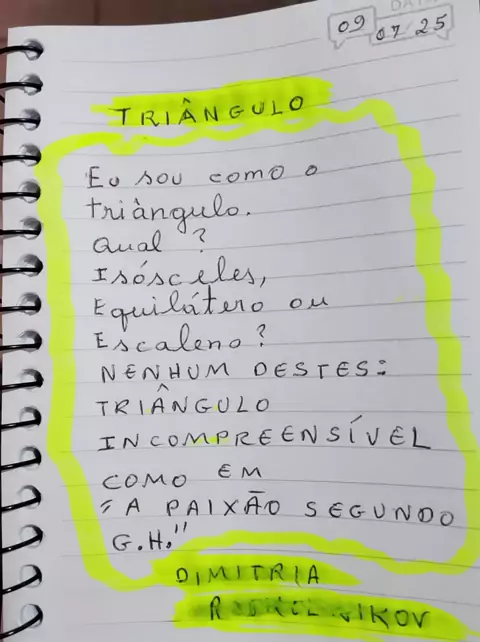 09 07 25
TRIÂNGULO
Eu sou como o
triângulo.
Qual ?
Isósceles,
Equilátero ou
Escaleno?
NENHUM DESTES:
TRIÂNGULO
INCOMPREENSÍVEL
COMO EM
"A PAIXÃO SEGUNDO
G.H."
DIMITRIA